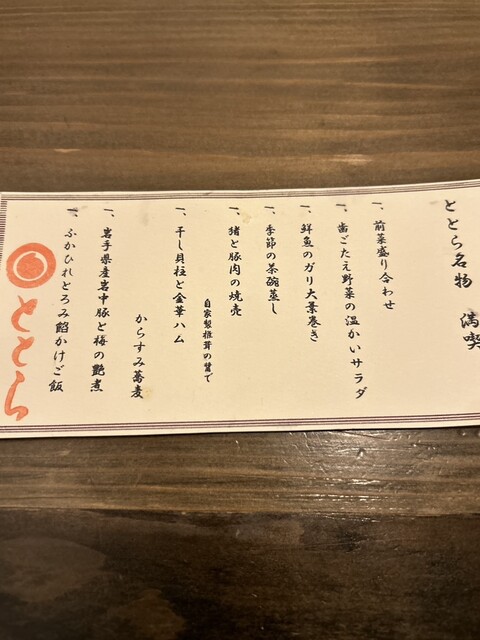 ととら名物 満喫
一、前菜盛り合わせ
一、歯ごたえ野菜の温かいサラダ
一、鮮魚のガリ大葉巻き
一、季節の茶碗蒸し
一、猪と豚肉の焼売
自家製椎茸の醤で
一、干し貝柱と金華ハム
からすみ蕎麦
一、岩手県産岩中豚と梅の艶煮
一、ふかひれとろみ餡かけご飯
ととら